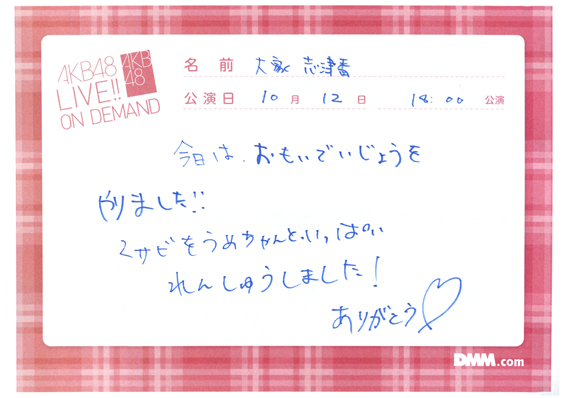 AKB48
LIVE!!
ON DEMAND
AKB
48
名前 大家 志津香
公演日 10月 12日 18:00 公演
今日は、おもいでいじょうを
やりました!!
2サビをうめちゃんといっぱい
れんしゅうしました!
ありがとう♡
DMM.com